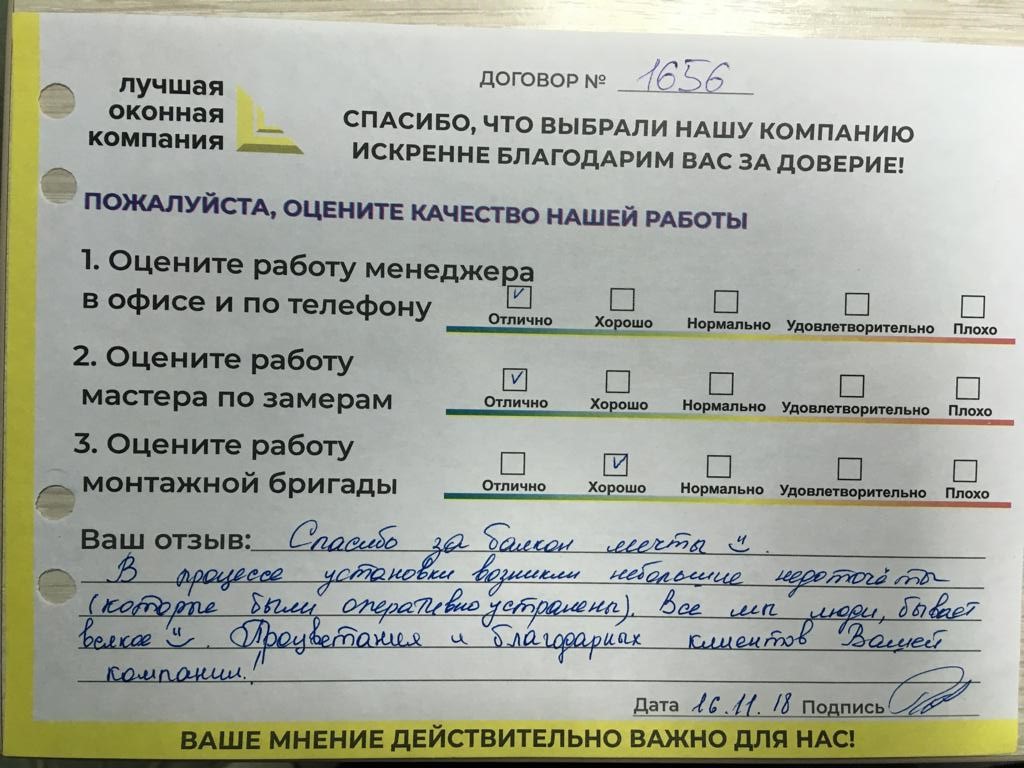 лучшая
оконная
компания
ДОГОВОР № 1656
СПАСИБО, ЧТО ВЫБРАЛИ НАШУ КОМПАНИЮ
ИСКРЕННЕ БЛАГОДАРИМ ВАС ЗА ДОВЕРИЕ!
ПОЖАЛУЙСТА, ОЦЕНИТЕ КАЧЕСТВО НАШЕЙ РАБОТЫ
1. Оцените работу менеджера
в офисе и по телефону
Отлично Хорошо Нормально Удовлетворительно Плохо
2. Оцените работу
мастера по замерам
Отлично Хорошо Нормально Удовлетворительно Плохо
3. Оцените работу
монтажной бригады
Отлично Хорошо Нормально Удовлетворительно Плохо
Ваш отзыв: Спасибо за балкон мечты
В процессе установки возникли небольшие недоточёты
(которые были оперативно устранены). Все мы люди, бывает
всякое. Процветания и благодарных клиентов Вашей
компании!
Дата 16.11.18 Подпись
ВАШЕ МНЕНИЕ ДЕЙСТВИТЕЛЬНО ВАЖНО ДЛЯ НАС!